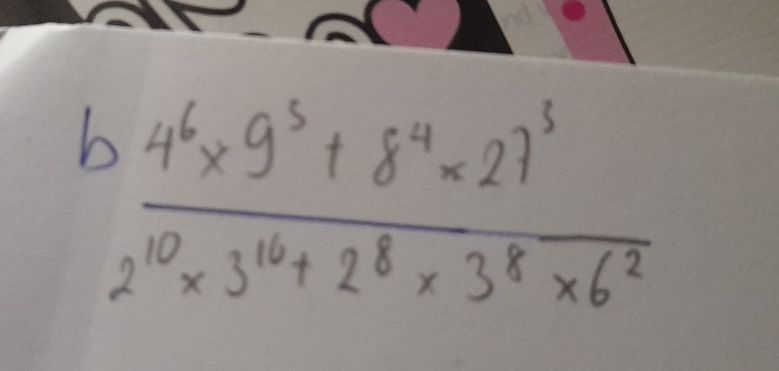 b 4^6 × 9^5 + 8^4 × 27^3
2^10 × 3^10 + 2^8 × 3^8 × 6^2